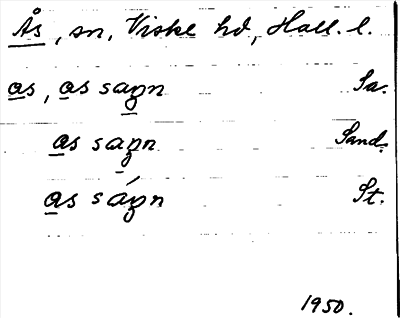 Ås, sn, Viske hd, Hall. l.
as, as sagn Sa.
as sagn Sand.
as ságn St.
1950.